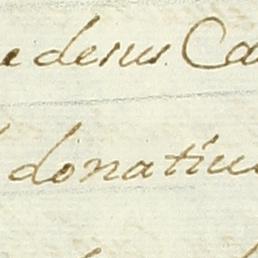 e desus. Ca
donatiu